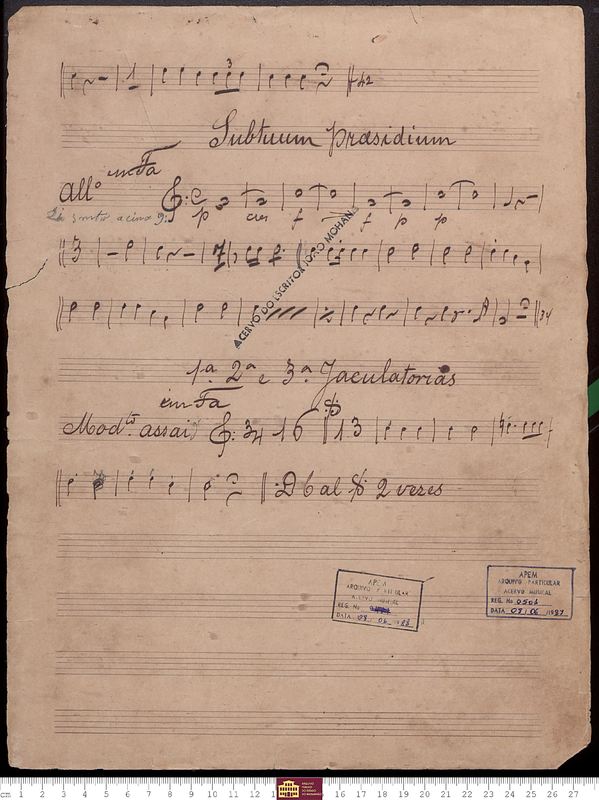 3
42
Subtuum Præsidium
em Fa
All°
C
p f f p p
3 7
ACERVO DO ESCRITOR JOÃO MOHANA
34
1ª 2ª e 3ª Jaculatorias
em Fa
Modto assai 3/4 16 13
D C al 2 vezes
APEM
ARQUIVO PARTICULAR
ACERVO MUSICAL
REG. No
DATA 08 / 06 / 1988
APEM
ARQUIVO PARTICULAR
ACERVO MUSICAL
REG. No 0506
DATA 08 / 06 / 1987
cm 1 2 3 4 5 6 7 8 9 10 11 12 16 17 18 19 20 21 22 23 24 25 26 27